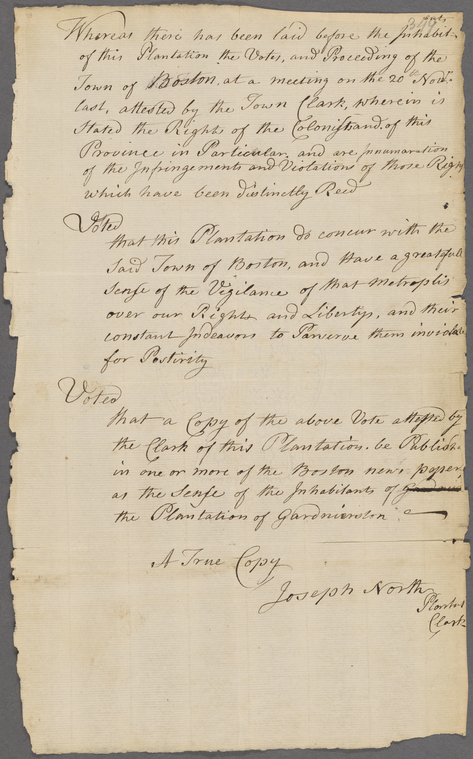 Whereas there has been laid before the Inhabit-
of this Plantation the Votes, and Proceeding of the
Town of Boston, at a meeting on the 20th Novr.
last, attested by the Town Clark, wherein is
Stated the Rights of the Colonists and of this
Province in Particular, and are
of the Infringements and Violation of those Rights
which have been distinctly Reed
Voted
that this Plantation do concur with the
Said Town of Boston, and Have a greatfull
Sense of the Vigilance of that Metroplis
over our Rights and Libertys, and their
constant Indeavors to Parserve them inviolate
for Postirity
Voted
that a Copy of the above Vote attested by
the Clark of this Plantation. be Publish
in one or more of the Boston news papers
as the Sense of the Inhabitants of
the Plantation of Gardnierston
A True Copy
Joseph North
Plantn
Clark